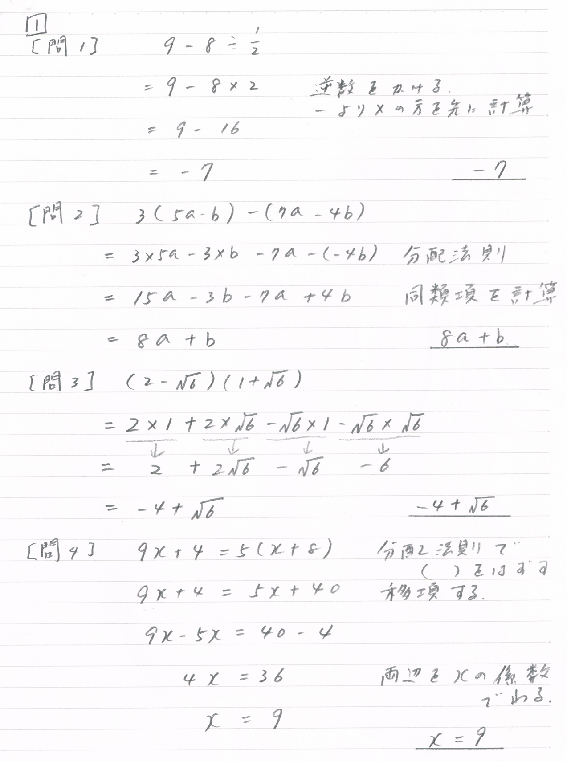 1
[問1] 9 - 8 ÷ 1/2
= 9 - 8 × 2 逆数をかける.
- より × の方を先に計算
= 9 - 16
= - 7 - 7
[問2] 3(5a-b) - (7a - 4b)
= 3×5a - 3×b - 7a - (-4b) 分配法則
= 15a - 3b - 7a + 4b 同類項を計算
= 8a + b 8a + b
[問3] (2 - √6)(1 + √6)
= 2 × 1 + 2 × √6 - √6 × 1 - √6 × √6
↓ ↓ ↓ ↓
= 2 + 2√6 - √6 - 6
= - 4 + √6 - 4 + √6
[問4] 9x + 4 = 5(x + 8) 分配法則で
( )をはずす
9x + 4 = 5x + 40 移項する.
9x - 5x = 40 - 4
4x = 36 両辺をxの係数
でわる.
x = 9
x = 9